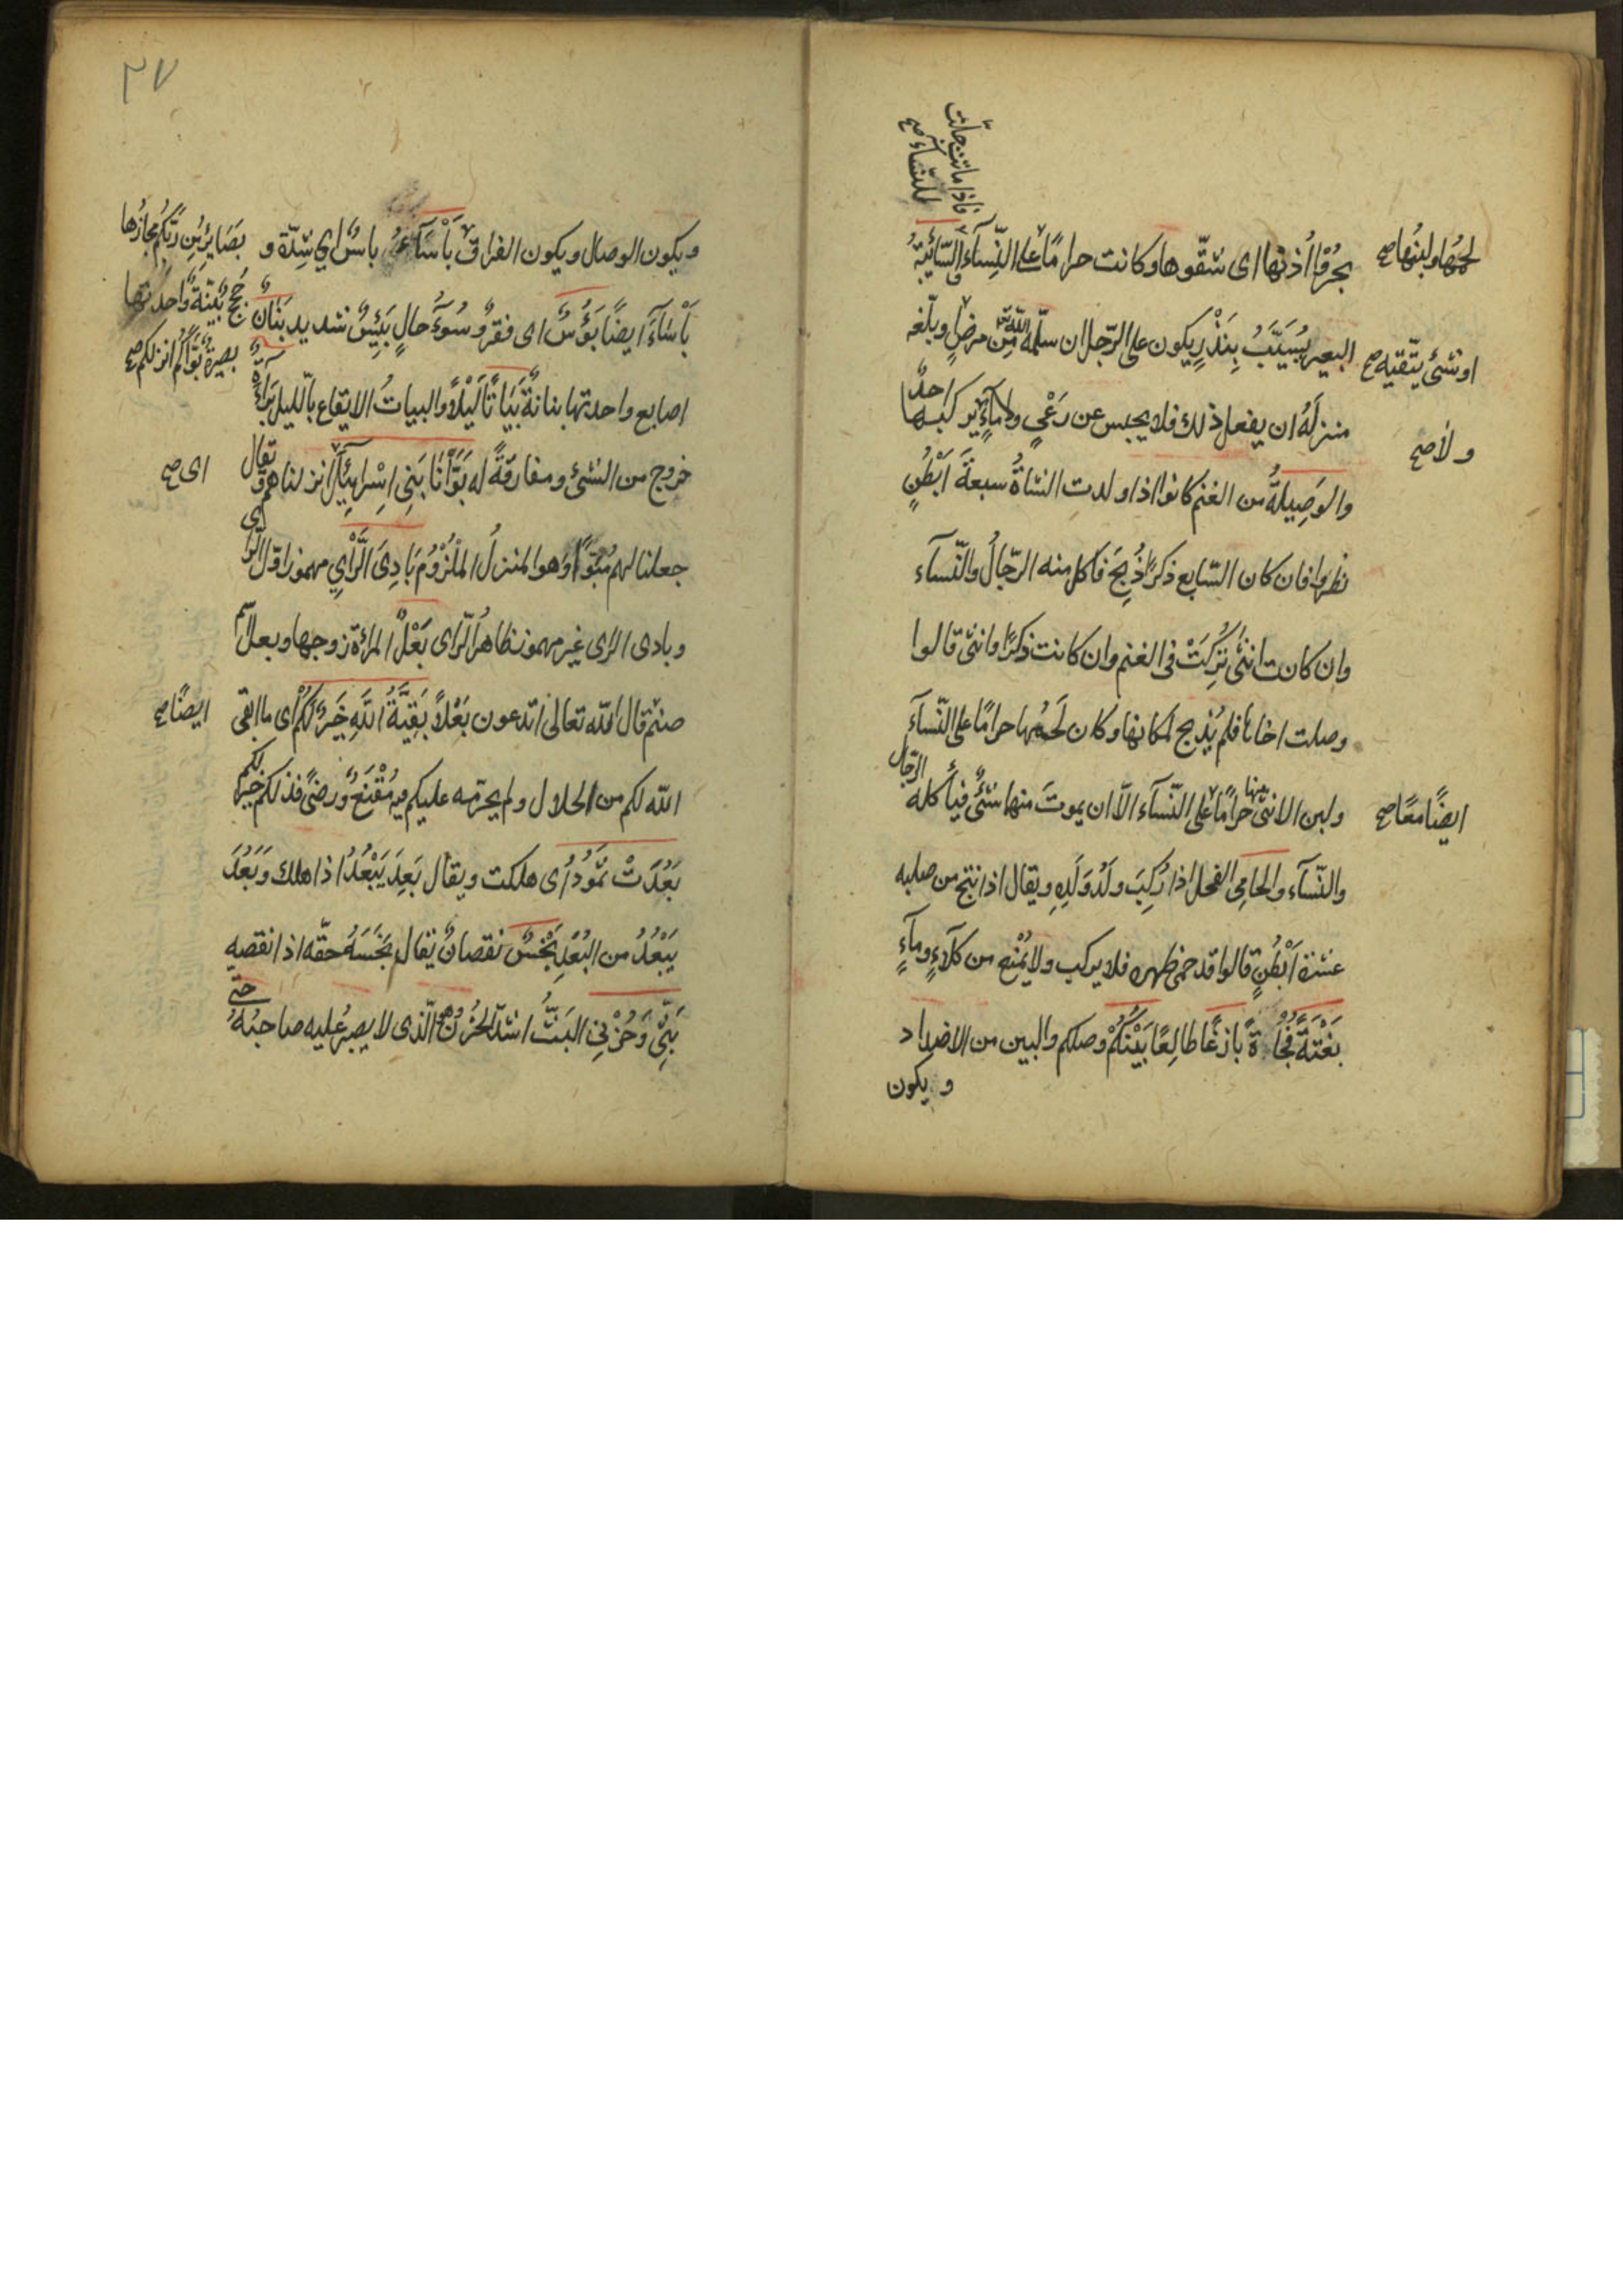 فاذا ماتت حلّت
للنّساء صح
بحرُوا اُذنها اى شقّوها وكانت حرامًا على النِّسآء والسّائبةُ
لحمُها ولبنُها صح
البعير يُسَيَّبُ بِنَذْرٍ يكون على الرّجل ان سلّمه الله من مرضٍ وبلّغه
او شئ يتّقيه صح
منزلَهُ ان يفعل ذلك فلا يحبس عن رَعْىٍ ولا مآءٍ يركبها احدٌ
ولا صح
والوَصِيلةُ من الغنم كانوا اذا ولدت الشاةُ سبعةَ اَبْطُنٍ
نظروا فان كان السّابع ذكرًا ذُبِحَ فاكل منه الرّجالُ والنّسآء
وان كانت انثىٰ تُرِكَتْ فى الغنم وان كانت ذكرًا وانثى قالوا
وصلت اخاها فلم يُذبح لمكانها وكان لَحمُها حرامًا على النّسآء
ولبن الانثى منها حرامًا على النّسآء الّا ان يموتَ منها شئٌ فيأكله الرّجال
ايضًا معًا صح
والنّسآء والحامِى الفحل اذا رُكِبَ ولَدُ وَلَدِهِ ويقال اذا نتج من صلبه
عشرة اَبْطُنٍ قالوا قد حمى ظهره فلا يركب ولا يُمْنع من كلآءٍ ومآءٍ
بَغْتَةً فُجْاءَةً بازغًا طالِعًا بَيْنَكُمْ وصلكم والبين من الاضداد
ويكون
٣٧
ويكون الوصال ويكون الفراق بَأْسَآءُ باسٌ اي شِدّة و
بَصَايِرُ مِن رَّبِّكُم مجازُها
بَأْسَآءَ ايضًا بَؤُسٌ اى فقرٌ وسُوءُ حالٍ بَئِيسٌ شديد بَنَانٌ
حُججٌ بَيّنَةٌ واحدتها
بصيرةٌ بَوَّاَكُم انزلكم صح
اصابع واحدتها بنانةٌ بَيَاتًا لَيْلًا والبياتُ الايقاع بالّليل بَرَآءَةٌ
خروج من الشئ ومفارقةٌ له بَوَّأْنَا بَنِى اِسْرايِيلَ انزلناهم ويقال
اى صح
جعلنا لهم مُبَوَّأً وهو المنزلُ المَلْزُوْمُ بَادِىَ الَّرَأْيِ مهموز اوّل الرّأى
وبادى الرّاى غير مهموز ظاهرُ الّرَاى بَعْلُ المرْاَةِ زوجها وبعل اسم
صنم قال الله تعالى اتدعون بَعْلًا بَقِيَّةُ اللّهِ خَيرٌ لَكُمْ اى ما ابقى
ايضًا صح
الله لكم من الحلال ولم يحرّمه عليكم فيه مُقْنَعٌ ورضىً فذلكم خير لكم
بَعُدَتْ ثَمُوْدُ اى هلكت ويقال بَعِدَ يَبْعَدُ اذا هلك وَبَعُدَ
يَبْعُدُ من البُعْدِ بَخْسٌ نقصانٌ يقال بَخَسَهُ حقّه اذا نقصه
بَثِّى وَحُزْنِى البَثُّ اشدّ الحُزْنِ الّذى لا يصبرُ عليه صاحبُهُ حتى